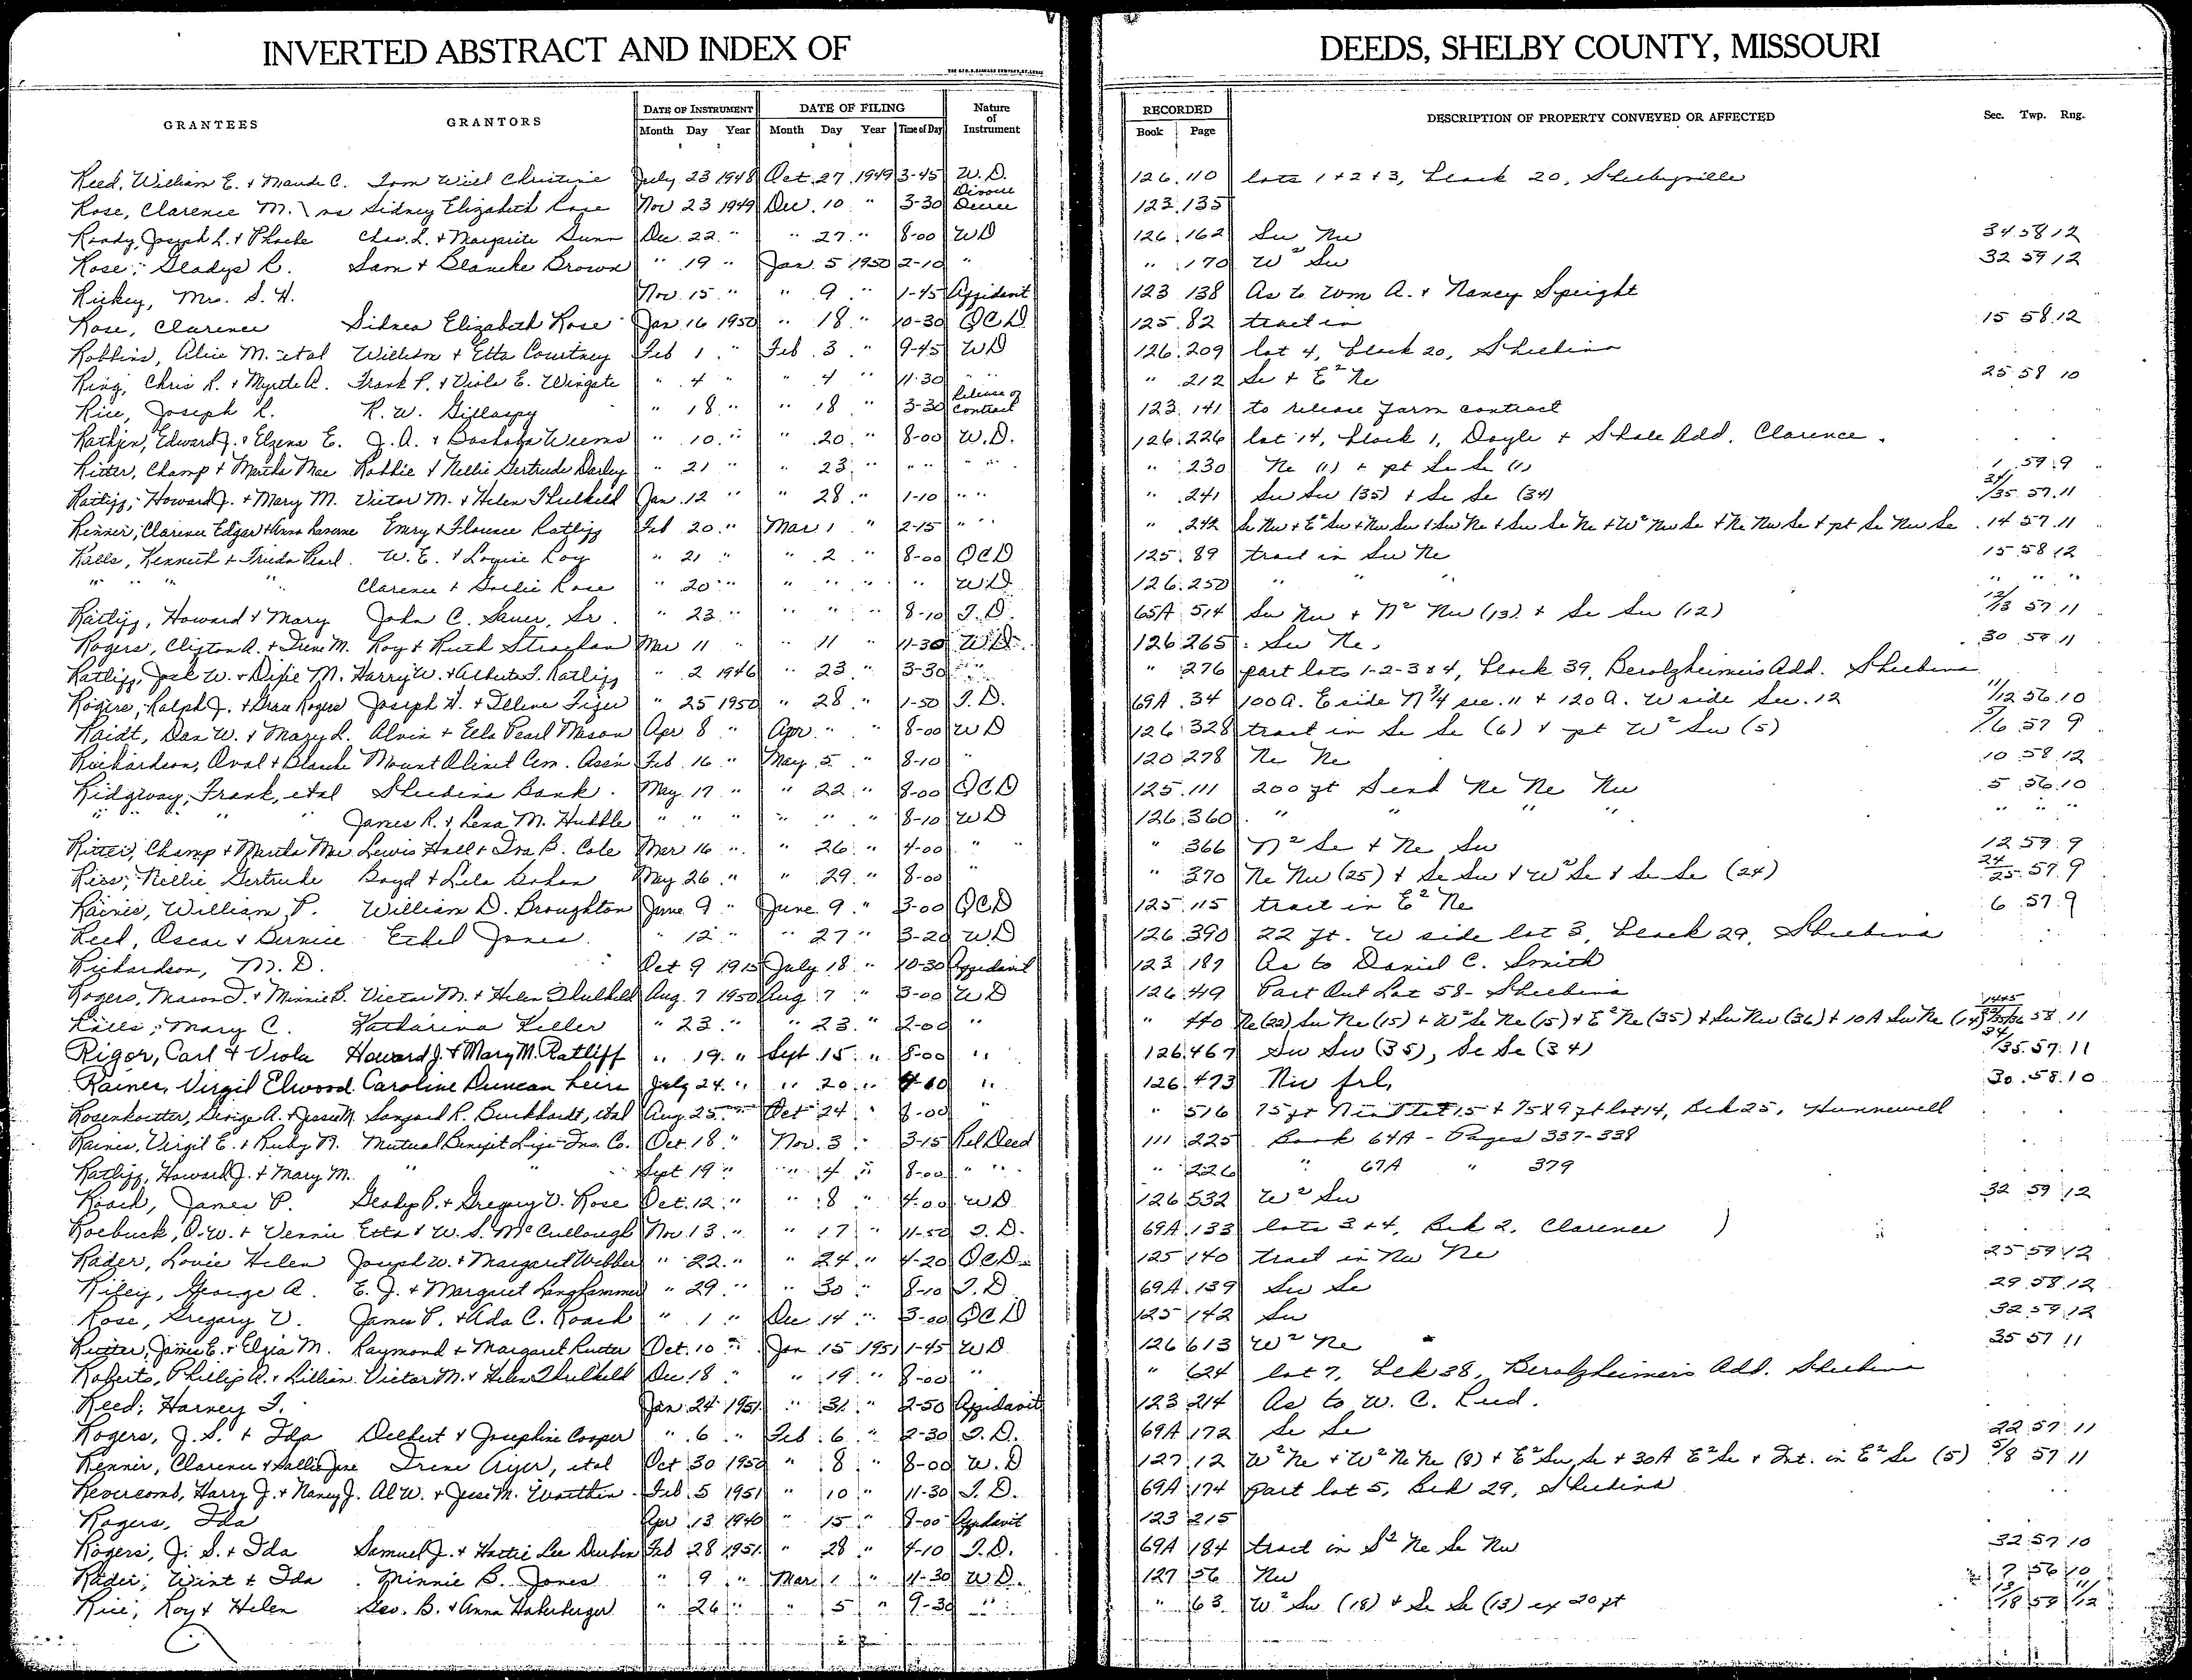 INVERTED ABSTRACT AND INDEX OF DEEDS, SHELBY COUNTY, MISSOURI
GRANTEES GRANTORS DATE OF INSTRUMENT DATE OF FILING Nature of Instrument RECORDED DESCRIPTION OF PROPERTY CONVEYED OR AFFECTED Sec. Twp. Rng.
Month Day Year Month Day Year Time of Day Book Page
Reed, William E. + Maude C. Tom Will Christine July 23 1948 Oct. 27 1949 3-45 W.D. 126 110 lots 1+2+3, block 20, Shelbyville
Rose, Clarence M. vs Sidney Elizabeth Rose Nov 23 1949 Dec. 10 " 3-30 Divorce Decree 123 135
Roady, Joseph L. + Phoebe Chas. L. + Margarite Gunn Dec. 22 " " 27 " 8-00 WD 126 162 Sw Nw 34 58 12
Rose, Gladys R. Sam + Blanche Brown " 19 " Jan. 5 1950 2-10 " " 170 W² Sw 32 59 12
Rickey, Mrs. S. H. Nov. 15 " " 9 " 1-45 Affidavit 123 138 As to Wm A. + Nancy Speight
Rose, Clarence Sidnea Elizabeth Rose Jan 16 1950 " 18 " 10-30 QCD 125 82 tract in 15 58 12
Robbins, Alice M. etal Williston + Etta Courtney Feb 1 " Feb. 3 " 9-45 WD 126 209 lot 4, block 20, Shelbina
Ring, Chris R. + Myrtle A. Frank P. + Viola E. Wingate " 4 " " 4 " 11-30 " " " 212 Se + E² Ne 25 58 10
Rice, Joseph R. R. W. Gillaspy " 18 " " 18 " 3-30 Release of Contract 123 141 to release farm contract
Rathjen, Edward J. + Elzena E. J. A. + Weems " 10 " " 20 " 8-00 W.D. 126 226 lot 14, block 1, Doyle + Shale Add. Clarence.
Ritter, Champ + Martha Mae Robbie + Nellie Gertrude Darley " 21 " " 23 " " " " " " 230 Ne (1) + pt Se Se (1) 1 59 9
Ratliff, Howard J. + Mary M. Victor M. + Helen Thulkeld Jan. 12 " " 28 " 1-10 " " " 241 Sw Sw (35) + Se Se (34) 34/35 57 11
Renner, Clarence Edgar + Anna Laverne Emry + Florence Ratliff Feb 20 " Mar 1 " 2-15 " " " 242 Se Nw + E² Sw + Nw Sw + Sw Ne + Sw Se Ne + W² Nw Se + Ne Nw Se + pt Se Nw Se 14 57 11
Ralls, Kenneth + Frieda Pearl W. E. + Louise Roy " 21 " " 2 " 8-00 QCD 125 89 tract in Sw Ne 15 58 12
" " " " Clarence + Goldie Rose " 20 " " " " " WD 126 250 " " " " " "
Ratliff, Howard + Mary John C. Sauer, Sr. " 23 " " " " 8-10 T.D. 65A 514 Sw Nw + N² Nw (13) + Se Sw (12) 12/13 57 11
Rogers, Clifton A. + Irene M. Roy + Ruth Strachan Mar 11 " " 11 " 11-30 WD 126 265 Sw Ne. 30 59 11
Ratliff, Jack W. + Dixie M. Harry W. + Alberta T. Ratliff " 2 1946 " 23 " 3-30 " " " 276 part lots 1-2-3+4, block 39, Berolzheimer's Add. Shelbina
Rogers, Ralph J. + Grace Rogers Joseph H. + Tellene Figer " 25 1950 " 28 " 1-50 T.D. 69A 34 100 A. E side N ¾ sec. 11 + 120 A. W side Sec. 12 11/12 56 10
Raidt, Dan W. + Mary L. Alvin + Eela Pearl Mason Apr 8 " Apr " " 8-00 WD 126 328 tract in Se Se (6) + pt W² Sw (5) 5/6 57 9
Richardson, Oval + Blanche Mount Olivet Cem. Ass'n Feb 16 " May 5 " 8-10 " 120 278 Ne Ne 10 58 12
Ridgway, Frank, etal Shelbina Bank May 17 " " 22 " 8-00 QCD 125 111 200 ft S end Ne Ne Nw 5 56 10
" " " " James R. + Lena M. Hubble " " " " " " 8-10 WD 126 360 " " " " " " "
Ritter, Champ + Martha Mae Lewis Hall + Ira B. Cole Mar 16 " " 26 " 4-00 " " " 366 N² Se + Ne Sw 12 59 9
Rice, Nellie Gertrude Boyd + Lela Bohan May 26 " " 29 " 8-00 " " 370 Ne Nw (25) + Se Sw + W² Se + Se Se (24) 24/25 57 9
Raines, William P. William D. Broughton June 9 " June 9 " 3-00 QCD 125 115 tract in E² Ne 6 57 9
Reed, Oscar + Bernice Ethel Jones " 12 " " 27 " 3-20 WD 126 390 22 ft. W side lot 3, block 29, Shelbina
Richardson, M. D. Oct 9 1915 July 18 " 10-30 Affidavit 123 187 As to Daniel C. Smith
Rogers, Mason T. + Minnie B. Victor M. + Helen Thulkeld Aug. 7 1950 Aug 7 " 3-00 WD 126 419 Part Out Lot 58 - Shelbina
Ralls, Mary C. Katharina Keller " 23 " " 23 " 2-00 " " 440 Ne (22) Sw Ne (15) + W² Se Ne (15) + E² Ne (35) + Sw Nw (36) + 10 A Sw Ne (14) 58 11
Rigor, Carl + Viola Howard J. + Mary M. Ratliff " 19 " Sept 15 " 8-00 " 126 467 Sw Sw (35), Se Se (34) 34/35 57 11
Raines, Virgil Elwood Caroline Duncan heirs July 24 " " 20 " 4-10 " 126 473 Nw frl. 30 58 10
Rosenkoetter, George A. + Jessie M. Sanford R. Burkhardt, etal Aug. 25 " Oct 24 " 8-00 " " 516 75 ft N end lot 15 + 75 x 9 ft lot 14, Blk 25, Hunnewell
Raines, Virgil E. + Ruby N. Mutual Benefit Life Ins. Co. Oct. 18 " Nov. 3 " 3-15 Rel Deed 111 225 Book 64A - Pages 337-338
Ratliff, Howard J. + Mary M. " " Sept 19 " " 4 " 8-00 " " " 226 " 67A " 379
Roach, James P. Gladys R. + Gregory V. Rose Oct. 12 " " 8 " 4-00 WD 126 532 W² Sw 32 59 12
Roebuck, O. W. + Vennie Etta + W. S. McCullough Nov. 13 " " 17 " 11-50 T.D. 69A 133 lots 3+4, Blk 2, Clarence
Rader, Lovie Helen Joseph W. + Margaret Webber " 22 " " 24 " 4-20 QCD 125 140 tract in Nw Ne 25 59 12
Rifey, George A. E. J. + Margaret Langhammer " 29 " " 30 " 8-10 T.D 69A 139 Sw Se 29 58 12
Rose, Gregory V. James P. + Ada C. Roach " 1 " Dec 14 " 3-00 QCD 125 142 Sw 32 59 12
Rutter, Jamie E. + Elzia M. Raymond + Margaret Rutter Oct. 10 " Jan 15 1951 1-45 WD 126 613 W² Ne 35 57 11
Roberts, Phillip A. + Lillian Victor M. + Helen Thulkeld Dec 18 " " 19 " 8-00 " " 624 lot 7, blk 38, Berolzheimer's Add. Shelbina
Reed, Harvey T. Jan 24 1951 " 31 " 2-50 Affidavit 123 214 As to W. C. Reed.
Rogers, J. S. + Ida Delbert + Josephine Cooper " 6 " Feb. 6 " 2-30 T.D. 69A 172 Se Se 22 57 11
Renner, Clarence + Sallie Jane Irene Ayer, etal Oct 30 1950 " 8 " 8-00 W.D 127 12 W² Ne + W² Ne Ne (8) + E² Sw Se + 30 A E² Se + Int. in E² Se (5) 5/8 57 11
Revercomb, Harry J. + Nancy J. Al W. + Jessi M. Worthen Feb. 5 1951 " 10 " 11-30 T.D. 69A 174 part lot 5, Blk 29, Shelbina
Rogers, Ida Apr 13 1940 " 15 " 8-00 Affidavit 123 215
Rogers, J. S. + Ida Samuel J. + Hattie Lee Durbin Feb 28 1951 " 28 " 4-10 T.D. 69A 184 tract in S² Ne Se Nw 32 57 10
Rader, Wint + Ida Minnie B. Jones " 9 " Mar. 1 " 11-30 W.D. 127 56 Nw 7 56 10
Rice, Roy + Helen Geo. B. + Anna Haberberger " 26 " " 5 " 9-30 " " 63 W² Sw (18) + Se Se (13) ex 20 ft 13/18 59 11/12